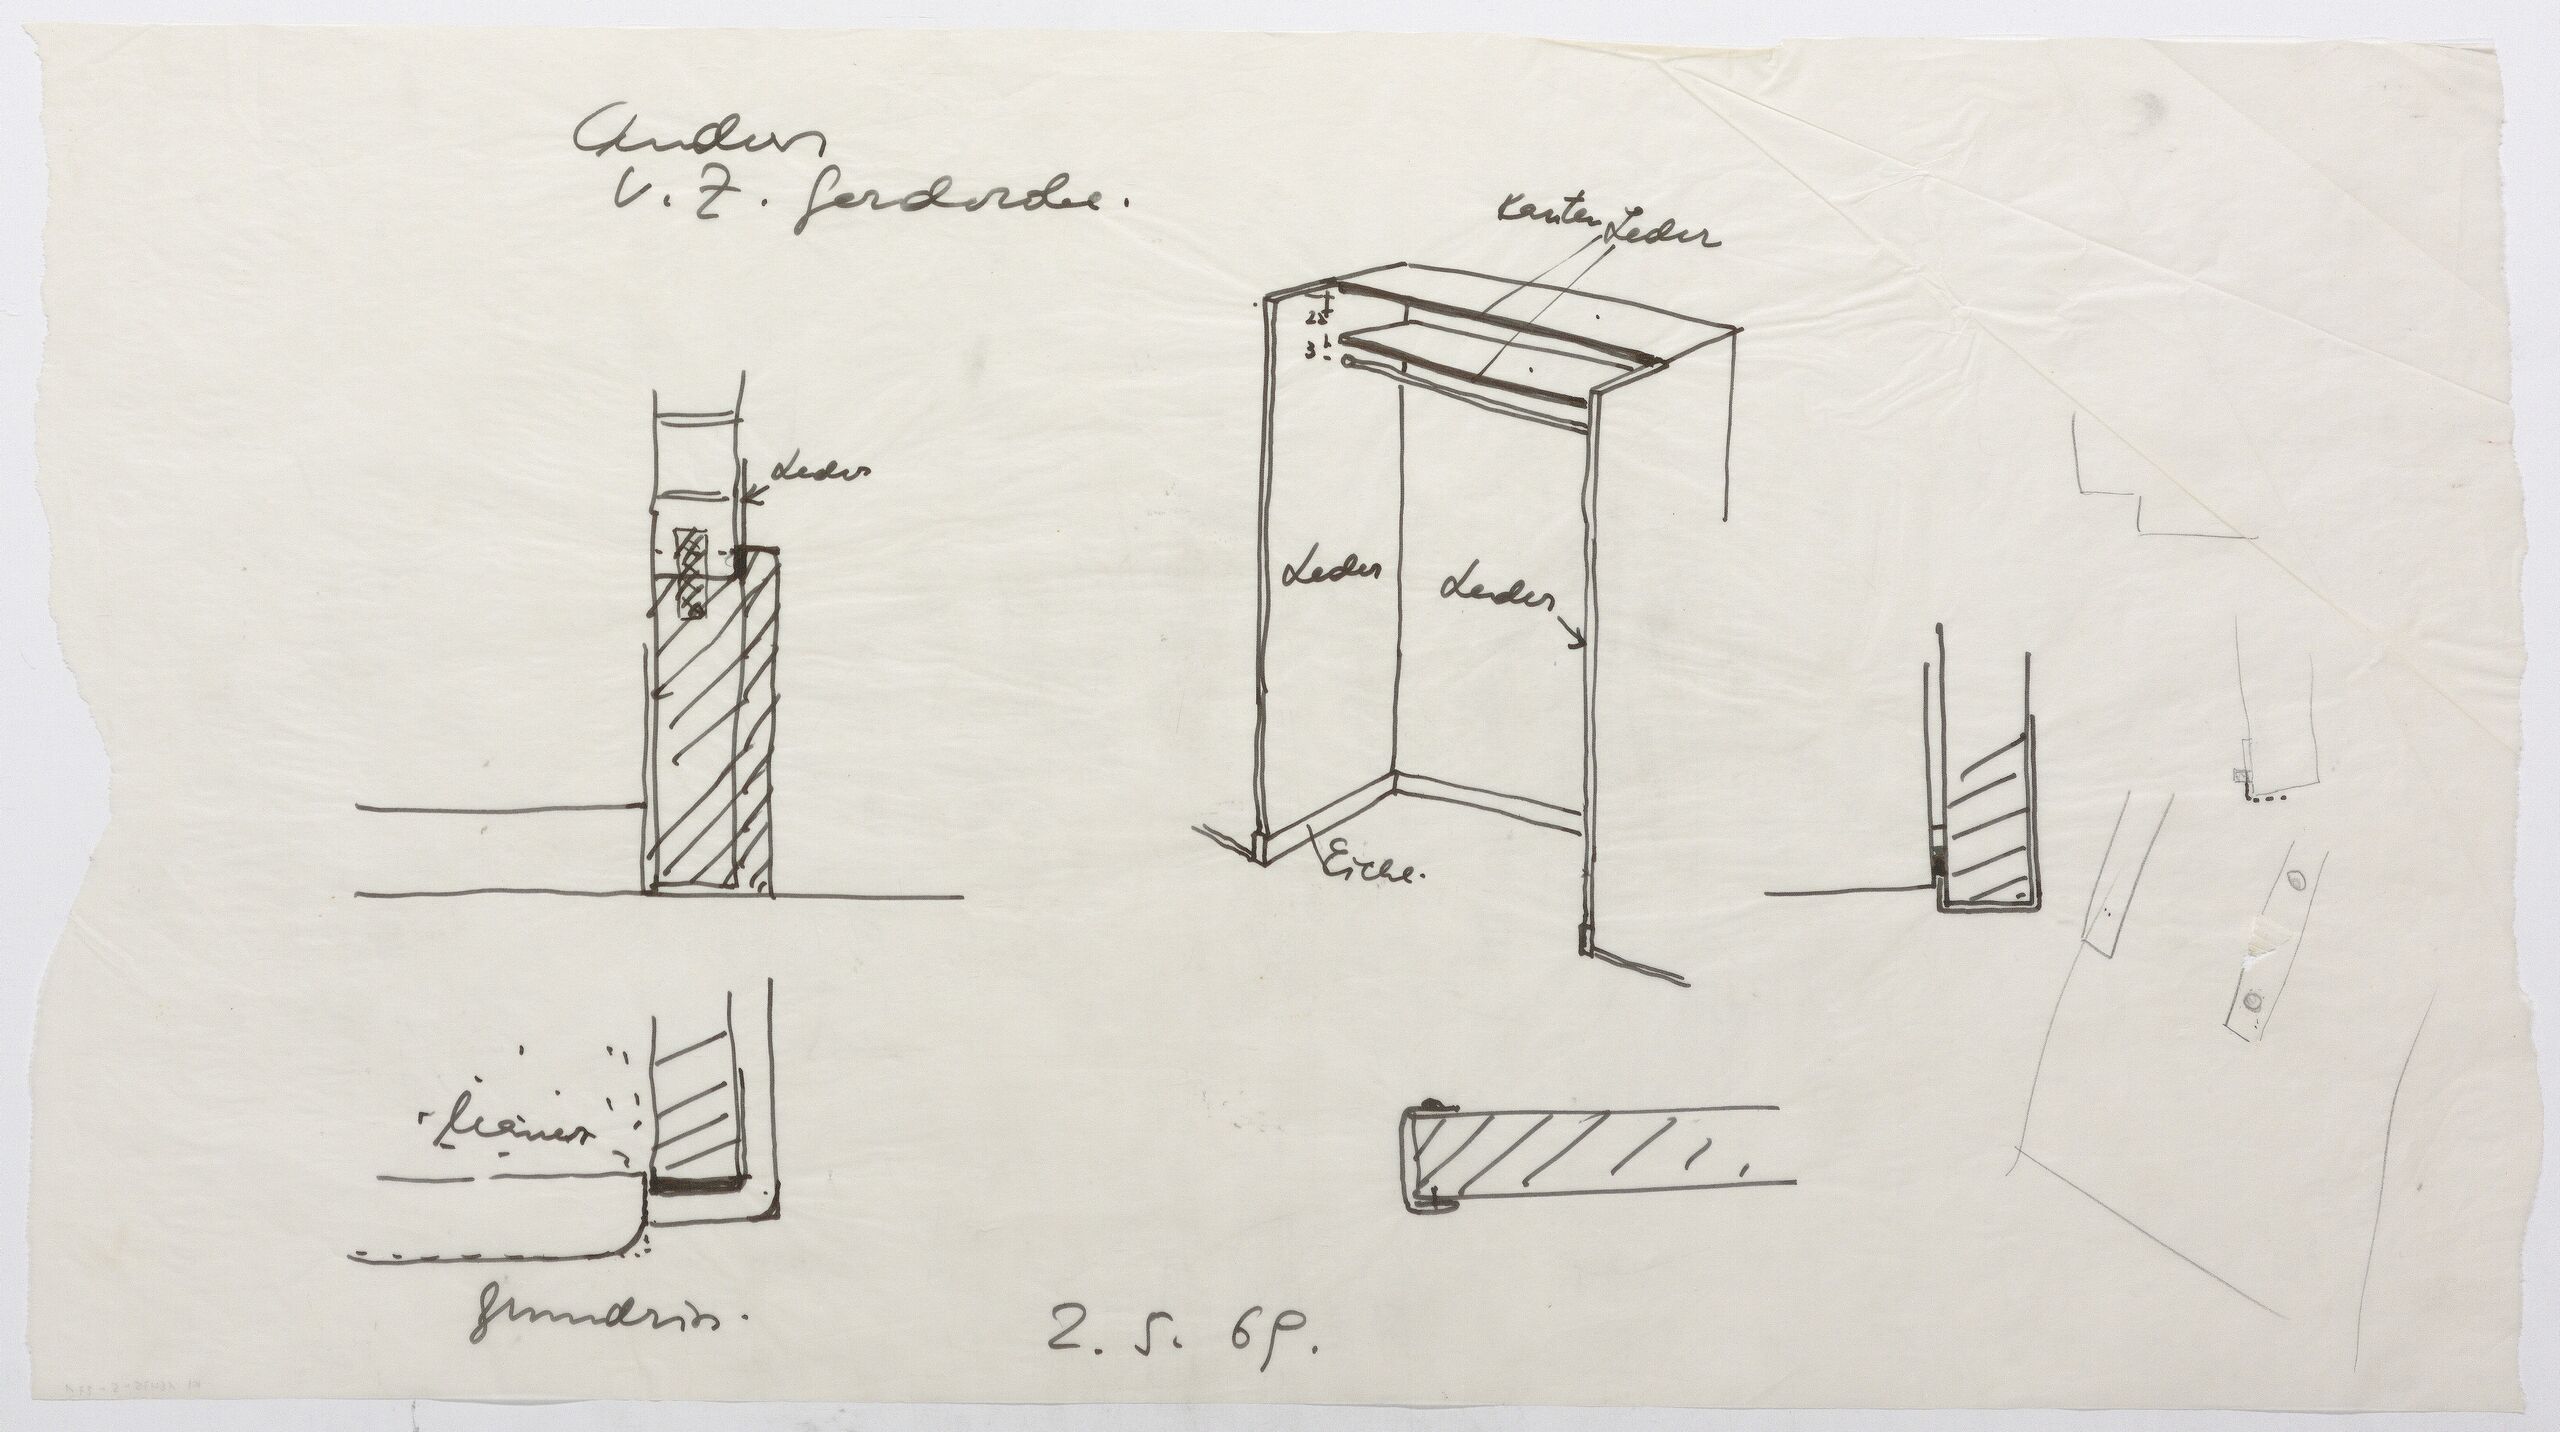 Anders
V. Z. Garderobe.
Kanten Leder
25
3
Leder
Leder
Leder
Eiche.
Grundriss.
2. 5. 69.